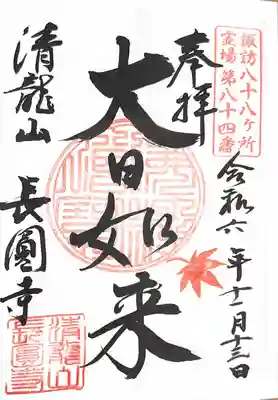 諏訪八十八ヶ所
霊場第八十四番
奉拝
令和六年十一月十三日
大日如来
清龍山
長圓寺
清龍山
長圓寺